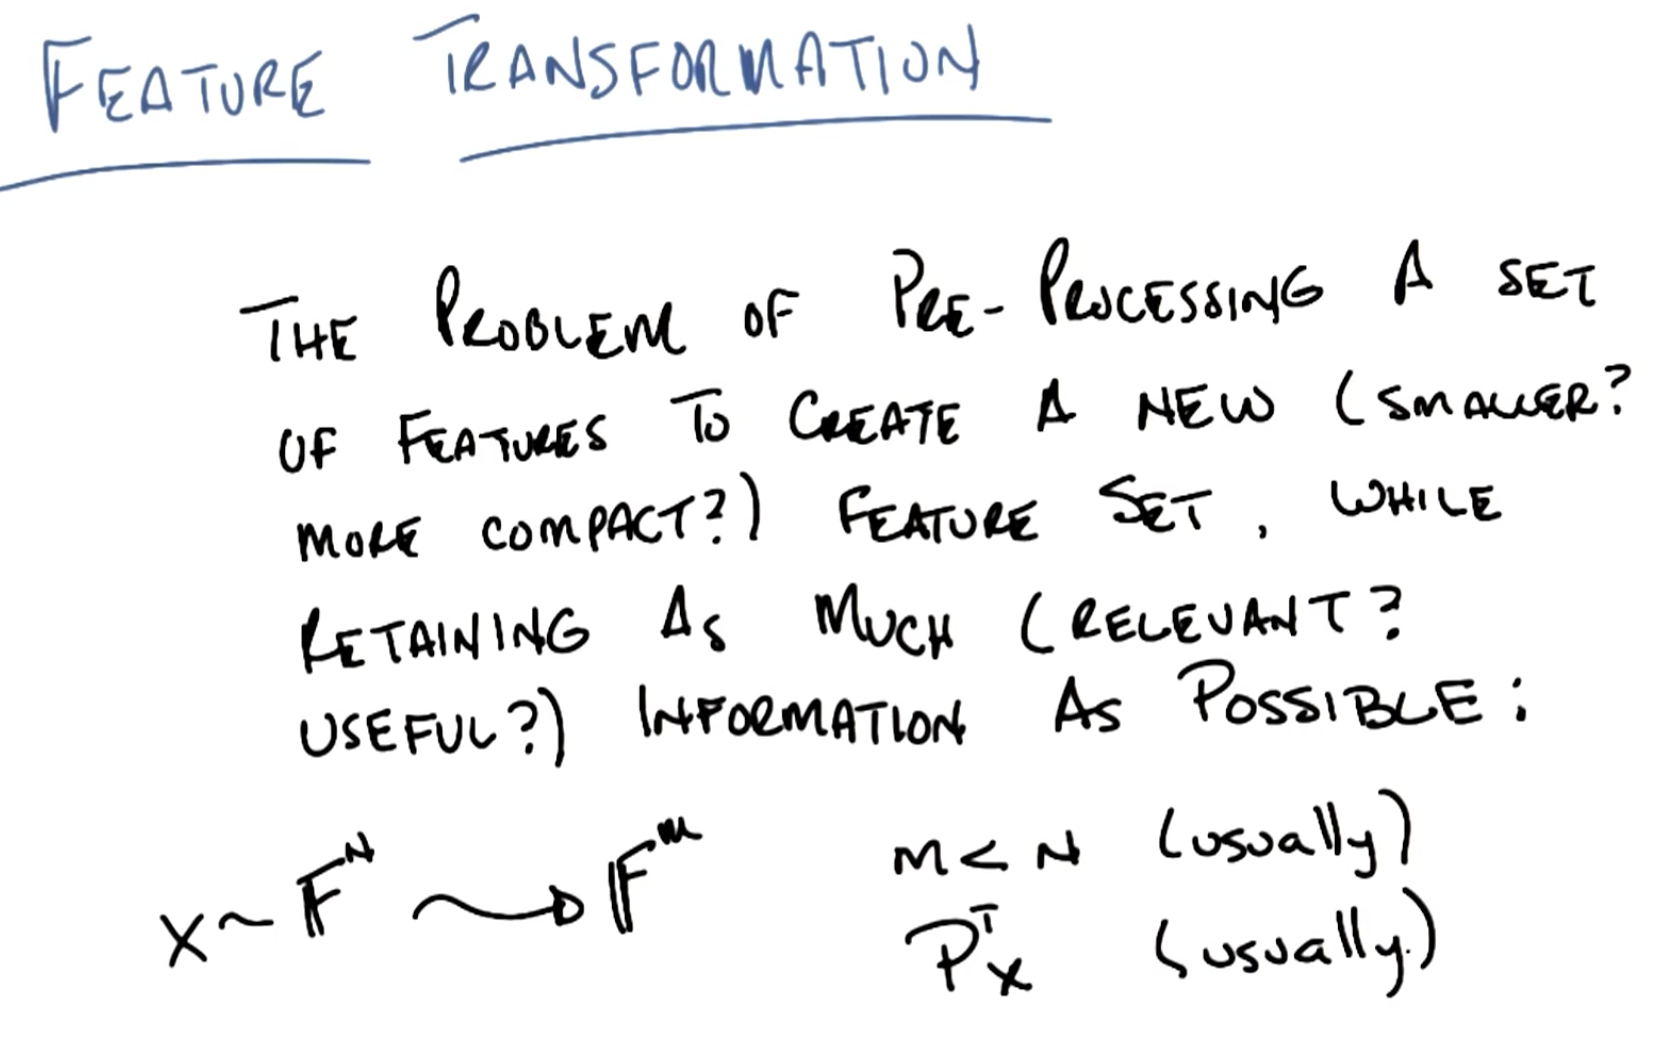 FEATURE TRANSFORMATION
THE PROBLEM OF PRE-PROCESSING A SET
OF FEATURES TO CREATE A NEW (SMALLER?
MORE COMPACT?) FEATURE SET, WHILE
RETAINING AS MUCH (RELEVANT?
USEFUL?) INFORMATION AS POSSIBLE:
X ~ 𝔽ᴺ ⟿ 𝔽ᴹ M < N (usually)
PᵀX (usually.)